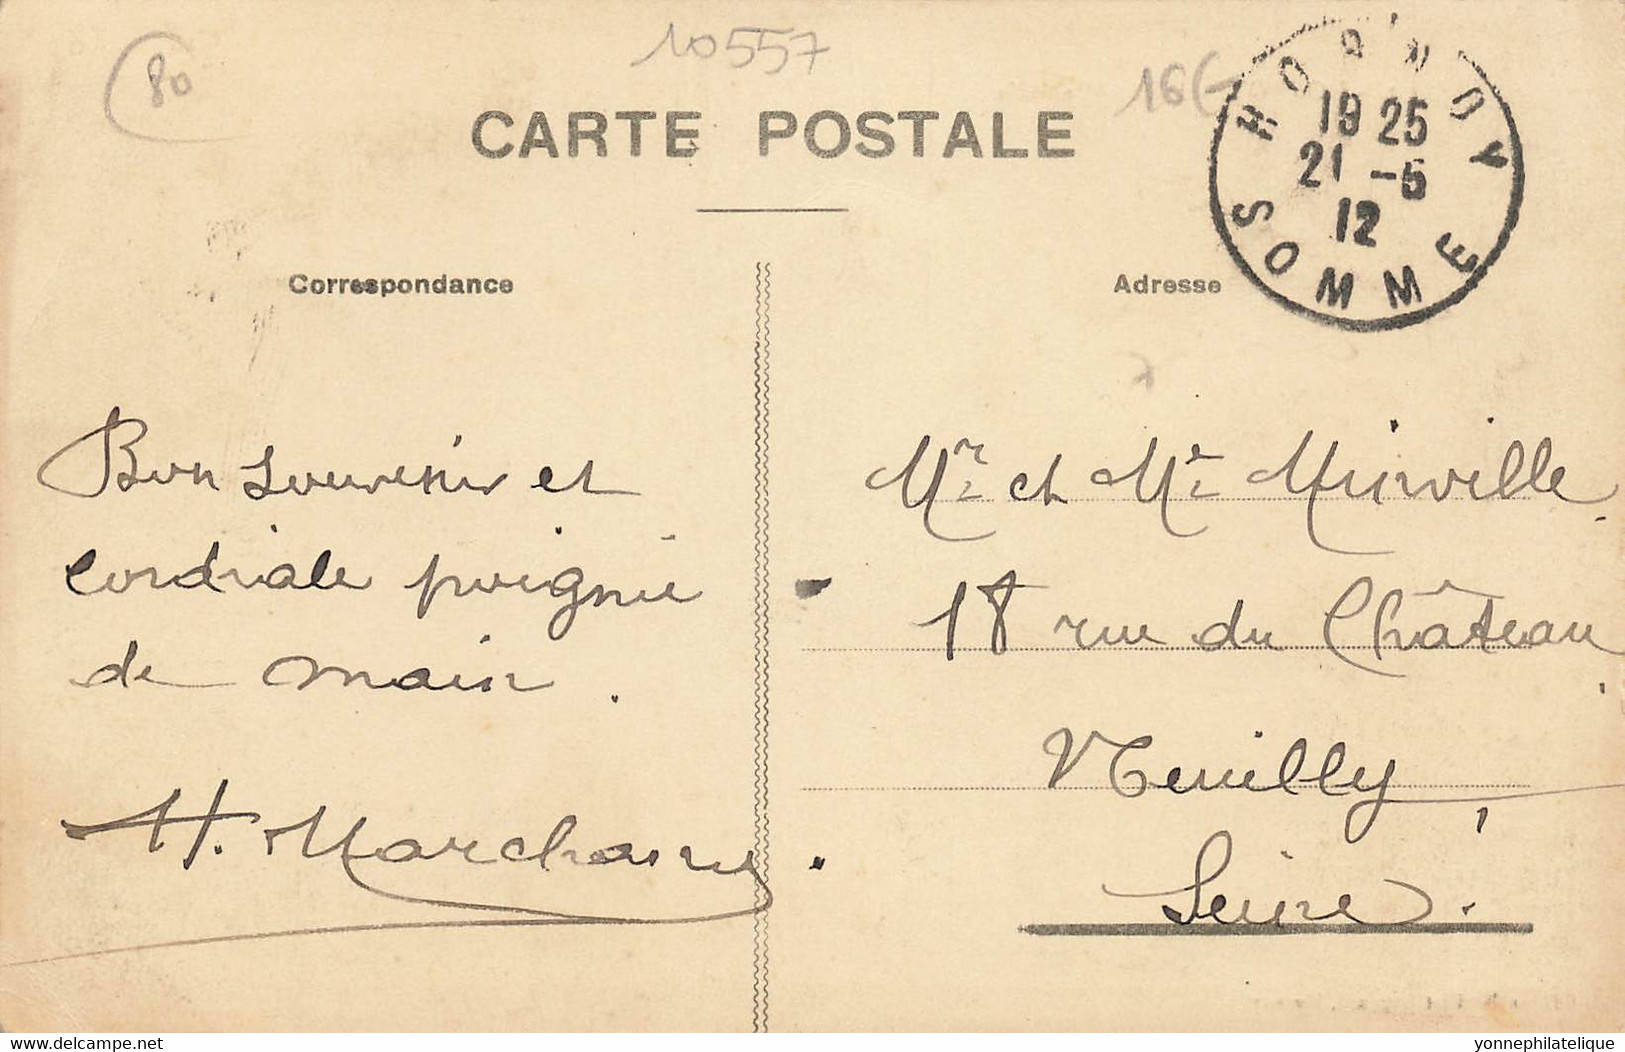 80
10557
CARTE POSTALE
HORNOY
19 25
21 -5
12
SOMME
Correspondance
Adresse
Bon souvenir et
cordiale poignée
de main.
H. Marchand.
Mr et Me Minville.
18 rue du Château,
Neuilly,
Seine.
www.delcampe.net
yonnephilatelique